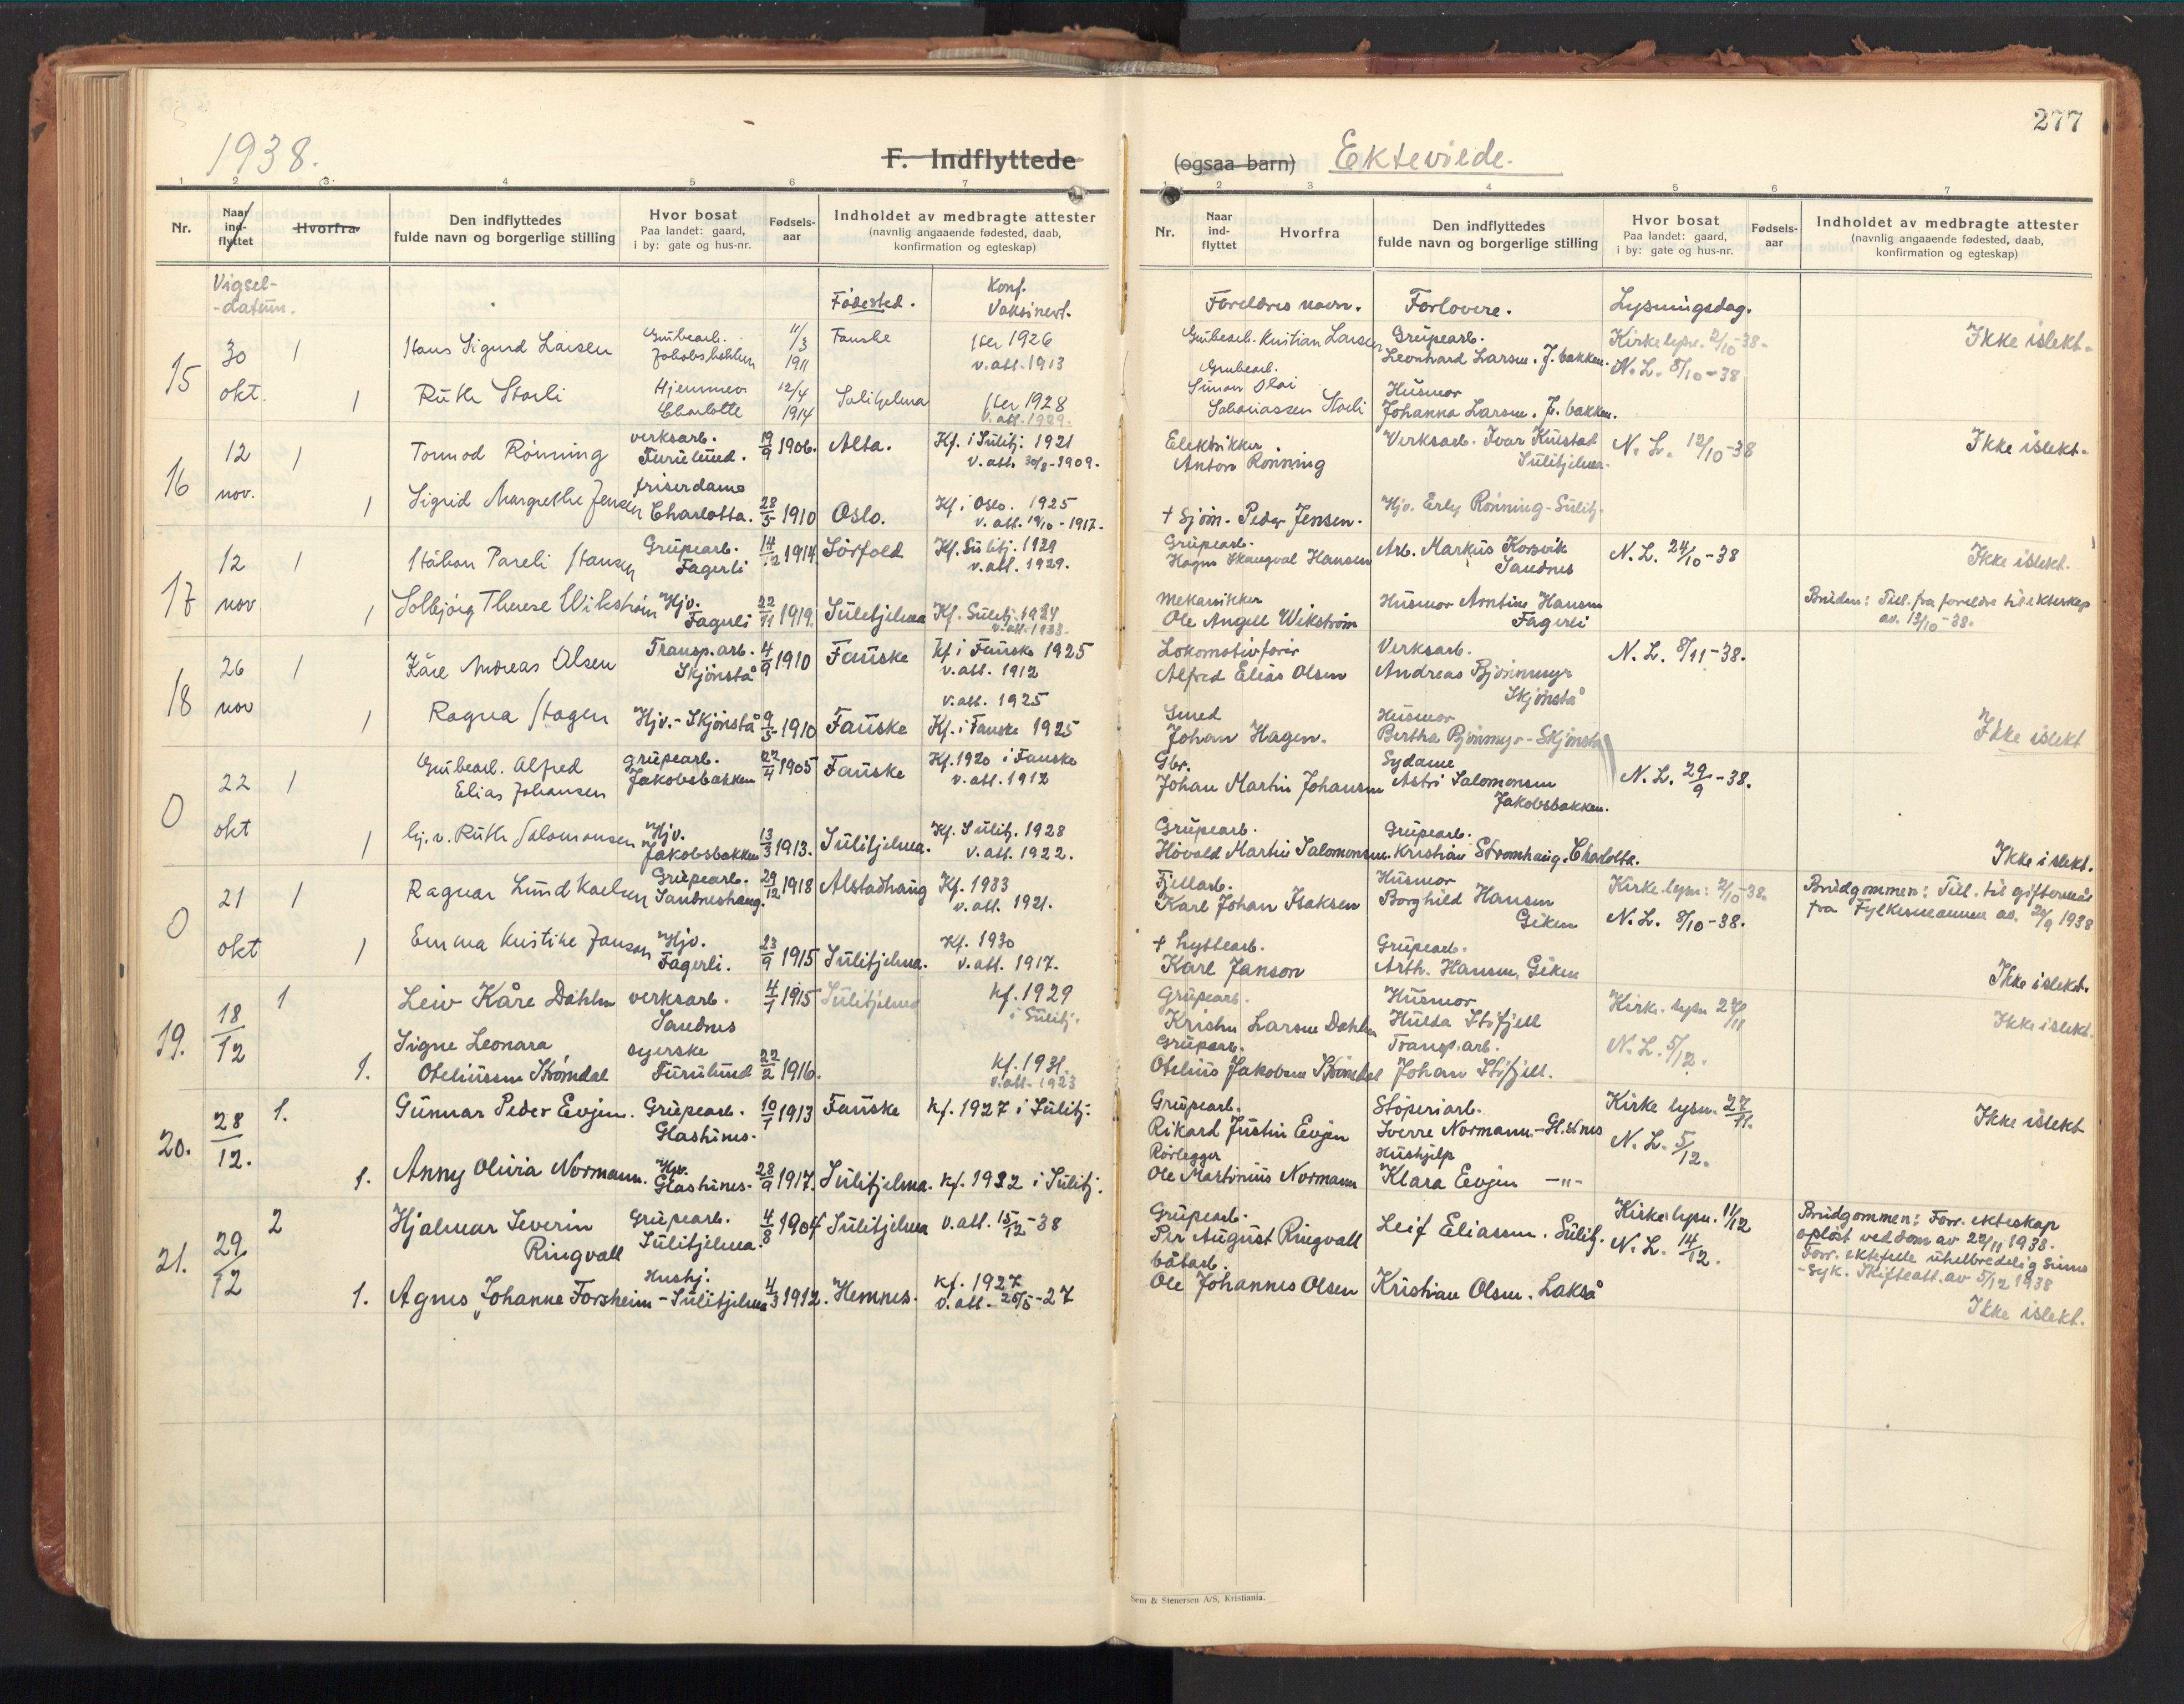 277
1938.
F. Indflyttede (ogsaa barn) Ektevilde.
1 2 3 4 5 6 7
1 2 3 4 5 6 7
Nr.
Naar ind-flyttet
Hvorfra
Den indflyttedes fulde navn og borgerlige stilling
Hvor bosat Paa landet: gaard, i by: gate og hus-nr.
Fødsels-aar
Indholdet av medbragte attester (navnlig angaaende fødested, daab, konfirmation og egteskap)
Nr.
Naar ind-flyttet
Hvorfra
Den indflyttedes fulde navn og borgerlige stilling
Hvor bosat Paa landet: gaard, i by: gate og hus-nr.
Fødsels-aar
Indholdet av medbragte attester (navnlig angaaende fødested, daab, konfirmation og egteskap)
Vigsel-datum.
Fødested.
Konf. Vaksinert.
Foreldres navn.
Forlovere.
Lysningsdag.
15 30 okt. 1 Hans Sigurd Larsen Grubearb. 11/3 1911 Fauske 1926 v.att. 1913
Grubearb. Kristian Larsen Grupearb. Leonhard Larsen. J. bakken. Kirke lysn. 2/10-38. N.L. 8/10-38 Ikke i slekt.
1 Ruth Storli Hjemmev. Charlotte 12/4 1914 Sulitjelma 1928 v.att. 1929.
Grubearb. Simon Olai Storli Husmor Johanna Larsen. J. bakken.
16 12 nov. 1 Tormod Rønning verksarb. Furulund. 19/9 1906. Alta. Kf. i Sulitj. 1921 v. att. 30/8-1909.
Elektrikker Anton Rønning Verksarb. Ivar Kulstad Sulitjelma. N.L. 12/10-38 Ikke i slekt.
1 Sigrid Margrethe Jensen friserdame Charlotta. 28/5 1910 Oslo. Kf. i Oslo. 1925 v. att. 19/10-1917.
† Sjøm. Peder Jensen. Hjv. Erly Rønning-Sulitj.
17 12 nov 1 Håkon Pareli Hansen Grupearb. Fagerli 14/12 1914 Sørfold Kf. Sulitj. 1929 v.att. 1929.
Grupearb. Hagen Skaugval Hansen Arb. Markus Korsvik Sandnes N.L. 24/10-38 Ikke i slekt.
1 Solbjørg Therese Wikstrøm Hjv. Fagerli 22/11 1919. Sulitjelma Kf. Sulitj. 1934 v.att. 1938.
Mekanikker Ole Angell Wikstrøm Husmor Arntine Hansen Fagerli Bruden: Till. fra foreldre til ekteskap av. 13/10-38.
18 26 nov 1 Kåre Andreas Olsen Transp. arb. Skjönstå 4/9 1910 Fauske Kf. i Fauske 1925 v. att. 1912
Lokomotivfører Alfred Elias Olsen Verksarb. Andreas Bjønnmyr Skjønstå N.L. 8/11-38.
1 Ragna Hagen Hjv.-Skjönstå 9/5 1910 Fauske v.att. 1925 Kf. i Fauske 1925
Smed Johan Hagen. Husmor Bertha Bjønnmyr-Skjønstå Ikke i slekt
0 22 okt 1 Grubearb. Alfred Elias Johansen grupearb. Jakobsbakken 22/4 1905 Fauske Kf. 1920 i Fauske v. att. 1912
Gbr. Johan Martin Johansen Sydame Astri Salomonsen Jakobsbakken. N.L. 29/9-38.
1 Hj.v. Ruth Salomonsen Hjv. Jakobsbakken 13/3 1913. Sulitjelma. Kf. Sulitj. 1928 v. att. 1922.
Grupearb. Hovald Martin Salomonsen. Grupearb. Kristian Strømhaug. Charlotta. Ikke i slekt.
0 21 okt 1 Ragnar Lund Karlsen Grupearb. Sandneshaug. 29/12 1918 Alstadhaug Kf. 1933 v. att. 1921.
Fjellarb. Karl Johan Isaksen Husmor Borghild Hansen Giken Kirke lysn: 2/10-38. N.L. 8/10-38. Brudgommen: Till. til giftermål fra Fylkesmannen av. 20/9 1938
1 Emma Kristine Janson Hjv. Fagerli. 23/9 1915 Sulitjelma. Kf. 1930 v. att. 1917.
† hyttearb. Karl Janson Grupearb. Arth. Hansen, Giken Ikke i slekt.
19. 18/12 1 Leiv Kåre Dahlen verksarb. Sandnes 4/1 1915 Sulitjelma kf. 1929 i Sulitj.
Grupearb. Kristen Larsen Dahlen Husmor Hulda Stifjell Kirke. lysn 27/11 Ikke i slekt.
1. Signe Leonara Oteliussen Strømdal syerske Furulund 22/2 1916. kf. 1931. v. att. 1923
Grupearb. Otelius Jakobsen Strømdal Transp.arb. Johan Stifjell. N.L. 5/12.
20. 28/12. 1. Gunnar Peder Evjen. Grupearb. Glashines. 10/1 1913 Fauske kf. 1927 i Sulitj.
Grupearb. Rikard Justin Evjen Støperiarb. Sverre Normann.-Gl.snes Kirke lysn. 27/11. N.L. 5/12. Ikke i slekt
1. Anny Olivia Normann. Hjv. Glashines. 28/9 1917. Sulitjelma. kf. 1932 i Sulitj.
Rørlegger Ole Martinius Normann Hushjelp Klara Evjen -"-
21. 29/12 2 Hjalmar Severin Ringvall Grupearb. Sulitjelma. 4/8 1904 Sulitjelma v. att. 15/12-38
Grupearb. Per August Ringvall Leif Eliassen. Sulitj. Kirke lysn. 11/12 N.L. 14/12. Brudgommen: Forr. ekteskap oplöst ved dom av 22/11 1938. Forr. ektefelle uhelbredelig sinns-syk. Skifteatt. av 5/12 1938
1. Agnes Johanne Forsheim - Hushj. Sulitjelma 4/3 1912. Hemnes. kf. 1927 v. att. - 25/5-27
båtarb. Ole Johannes Olsen Kristian Olsen. Lakså Ikke i slekt.
Sem & Stenersen A/S, Kristiania.